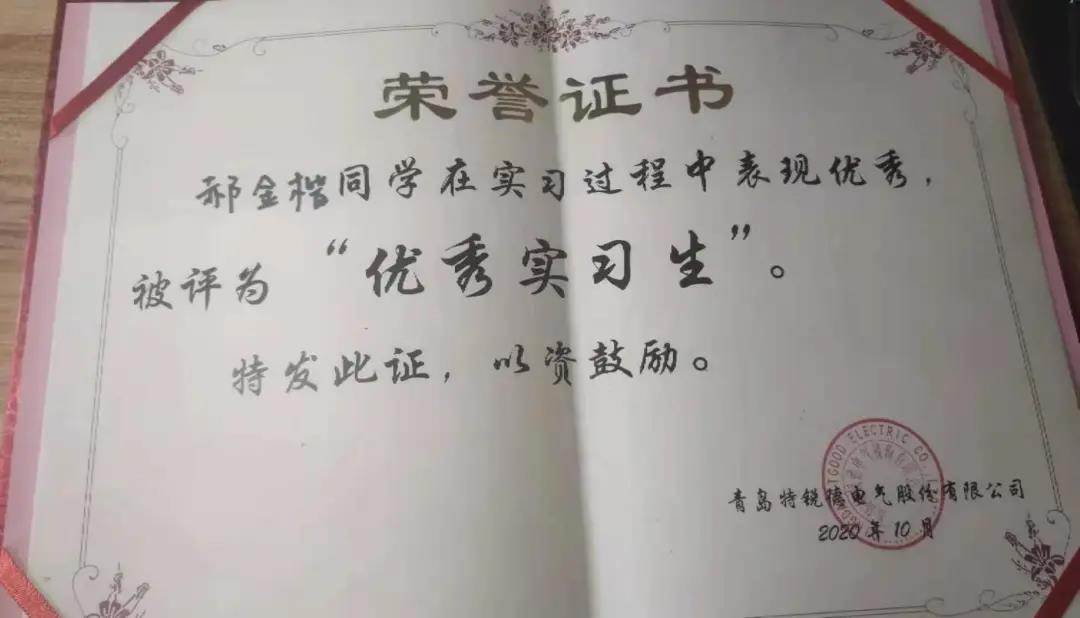 荣誉证书
郝金楷同学在实习过程中表现优秀，
被评为“优秀实习生”。
特发此证，以资鼓励。
TGOOD ELECTRIC CO.,
青岛特锐德电气股份有限公司
2020年10月